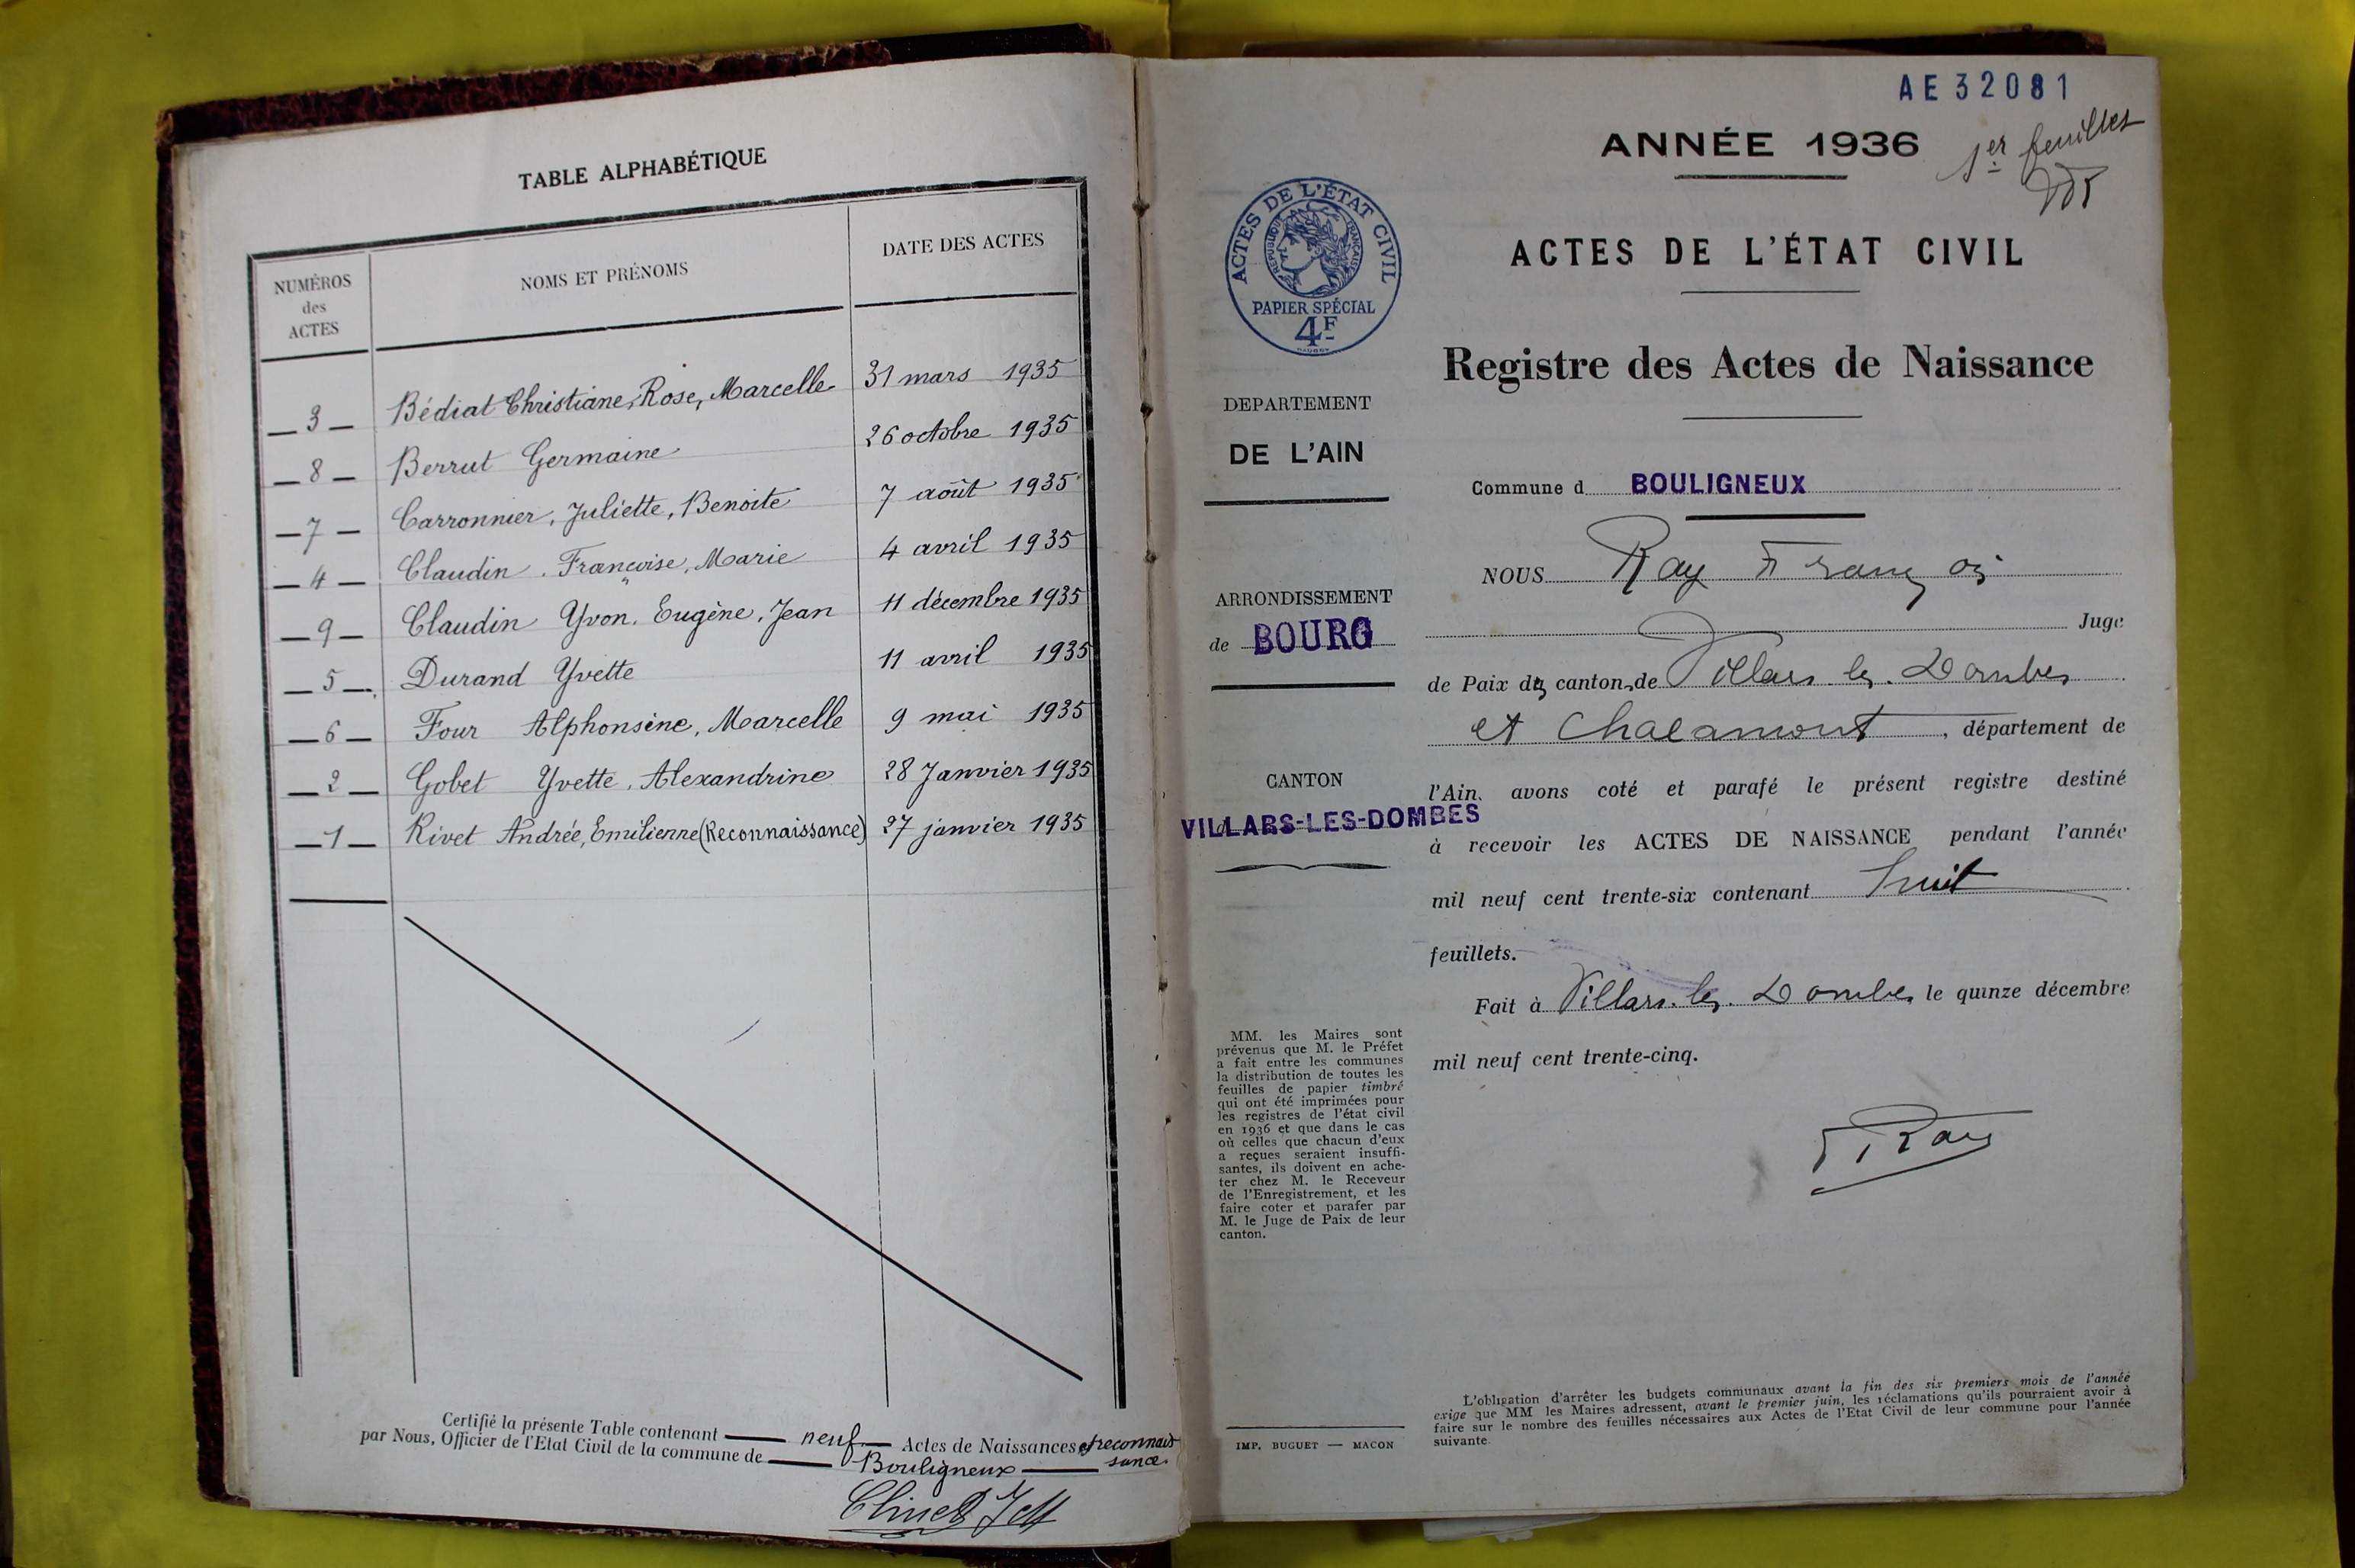 TABLE ALPHABÉTIQUE
NUMÉROS des ACTES
NOMS ET PRÉNOMS
DATE DES ACTES
— 3 — Bédiat Christiane, Rose, Marcelle 31 mars 1935
— 8 — Berrut Germaine 26 octobre 1935
— 7 — Carronnier, Juliette, Benoite 7 août 1935
— 4 — Claudin, Françoise, Marie 4 avril 1935
— 9 — Claudin Yvon, Eugène, Jean 11 décembre 1935
— 5 — Durand Yvette 11 avril 1935
— 6 — Four Alphonsine, Marcelle 9 mai 1935
— 2 — Gobet Yvette, Alexandrine 28 Janvier 1935
— 1 — Rivet Andrée, Emilienne (Reconnaissance) 27 janvier 1935
Certifié la présente Table contenant neuf Actes de Naissances et reconnais
sance.
par Nous, Officier de l'Etat Civil de la commune de Bouligneux
AE 32081
ANNÉE 1936
1er feuillet
ACTES DE L'ÉTAT CIVIL
RÉPUBLIQUE FRANÇAISE
PAPIER SPÉCIAL
4F
ACTES DE L'ÉTAT CIVIL
Registre des Actes de Naissance
DEPARTEMENT
DE L'AIN
ARRONDISSEMENT
de BOURG
CANTON
VILLARS-LES-DOMBES
Commune d BOULIGNEUX
NOUS Ray François
Juge
de Paix des cantons de Villars les Dombes
et Chalamont, département de
l'Ain, avons coté et parafé le présent registre destiné
à recevoir les ACTES DE NAISSANCE pendant l'année
mil neuf cent trente-six contenant huit
feuillets.
Fait à Villars les Dombes le quinze décembre
mil neuf cent trente-cinq.
F Ray
MM. les Maires sont
prévenus que M. le Préfet
a fait entre les communes
la distribution de toutes les
feuilles de papier timbré
qui ont été imprimées pour
les registres de l'état civil
en 1936 et que dans le cas
où celles que chacun d'eux
a reçues seraient insuffi-
santes, ils doivent en ache-
ter chez M. le Receveur
de l'Enregistrement, et les
faire coter et parafer par
M. le Juge de Paix de leur
canton.
IMP. BUGUET — MACON
L'obligation d'arrêter les budgets communaux avant la fin des six premiers mois de l'année
exige que MM les Maires adressent, avant le premier juin, les réclamations qu'ils pourraient avoir à
faire sur le nombre des feuilles nécessaires aux Actes de l'Etat Civil de leur commune pour l'année
suivante.